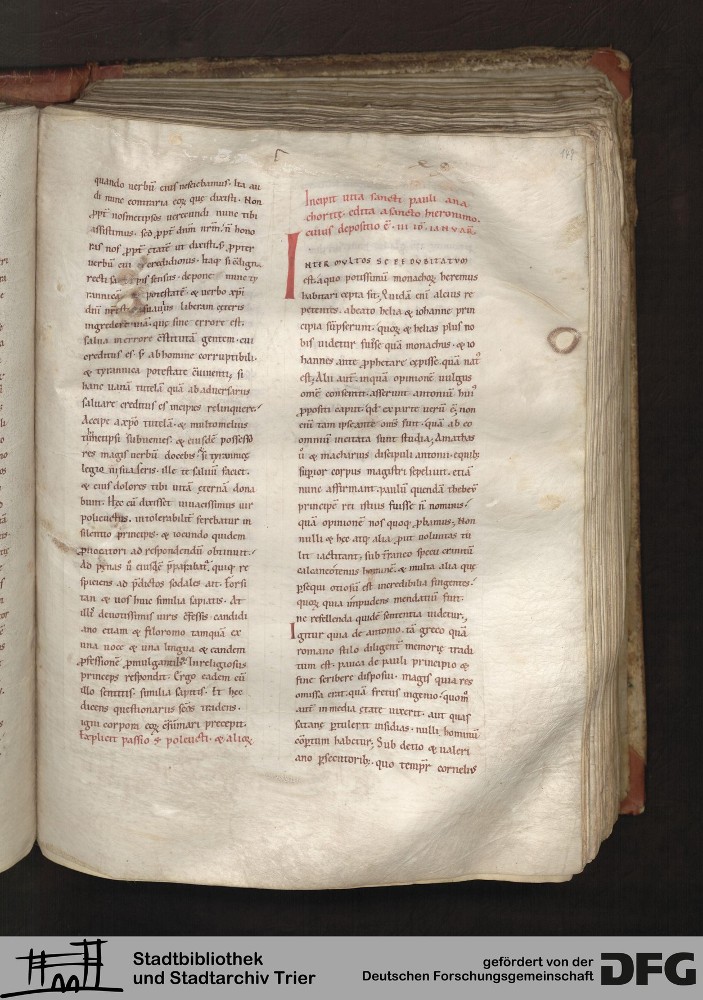 quando uerbū eius nesciebamus. Ita au
di nunc contraria eorꝫ que dixisti. Non
ꝓpt̄ nosmetipsos uerecundi nunc tibi
assistimus. sed ꝓpt̄ dūm nrm̄. ñ hono
ras nos ꝓpt̄ etatē ut dixisti. s; ꝓpter
uerbū cui credidimus. Itaqꝫ si
recti sapis sensus. depone nunc ty
rannicā potestatē. & uerbo xp̄i
liberam ceteris
ingredere uiā. que sine errore est.
salua in errore cōstitutā gentem. cui
creditus es. s; ab homine corruptibili.
& tyrannica potestate cōuenti; si
hanc uanā tutelā quā ab aduersarus
saluare creditus es incipies relinquere.
Accipe a xp̄o tutelā. & multo melius
subuenies. & eiusdē possesso
res magis uerbū docebis. si tyrannicę
legionis uaseris. ille te saluū faciet.
& eius dolores tibi uitā eternā dona
bunt. Hęc cū dixisset uiuacissimus uir
polieuctus. intolerabilit̄ ferebatur in
silentio principis. & iocundo quidem
ꝓuocatori ad respondendū obtinuit.
Ad penas ū eiusdē quiqꝫ re
spiciens ad p̄dictos sodales ait. Forsi
tan & uos huic similia sapiatis. At
illi deuotissimis uiris cōfessis. candidi
ano etiam & filoromo tamquā ex
una uoce & una lingua & eandem
ꝓfessionē ꝓmulgantib; Inreligiosus
princeps respondit. Ergo eadem cū
illo sentitis. similia sapitis. Et hęc
dicens questionarus scōs tradens.
igni corpora eorꝫ cōsumari precepit.
Explicit passio s; polieucti. & alioꝝ
Incipit uita sancti pauli ana
choritę. edita a sancto hieronimo.
cuius depositio ē. iii id̄. ianuar̄.
INTER MULTOS SEPE DUBITATUM
est. a quo potissimū monachoꝝ heremus
habitari cepta sit. Quidā eni alcius re
petentes. a beato helia & iohanne prin
cipia sūpserunt. quoꝝ & helias plus no
bis uidetur fuisse quā monachus. & io
hannes ante ꝓphetare cepisse quā nat⁹
est; Alii aut̄. inquā opinionē uulgus
omē consentit. asserunt antoniū hui⁹
ꝓpositi caput. qd̄ ex parte uerū ē; non
eni tam ipse ante om̄s fuit. quā ab eo
omniū incitata sunt studia; Amathas
ū & macharius discipuli antonii. e quib;
sup̄ior corpus magistri sepeliuit. etiā
nunc affirmant. paulū quendā thebeū
principē rei istius fuisse ñ nominis.
quā opinionē nos quoqꝫ ꝓbamus; Non
nulli & hęc atqꝫ alia. put uoluntas tu
lit iactitant; sub t̄raneo specu crinitū
calcaneotenus hominē. & multa alia que
ꝑsequi otiosū est incredibilia fingentes.
quoꝝ quia impudens mendatiū fuit.
ne refellenda quidē sententia uidetur,
Igitur quia de antonio. tā greco quā
romano stilo diligent̄ memorię tradi
tum est. pauca de pauli principio &
fine scribere disposui. magis quia res
omissa erat. quā fretus ingenio. quom̄
aut̄ in media etate uixerit. aut quas
satanę ꝑtulerit insidias. nulli hominū
cōptum habetur; Sub detio & ualeri
ano ꝑsecutorib;. quo tempr̄ cornelius
Stadtbibliothek
und Stadtarchiv Trier
gefördert von der
Deutschen Forschungsgemeinschaft
DFG